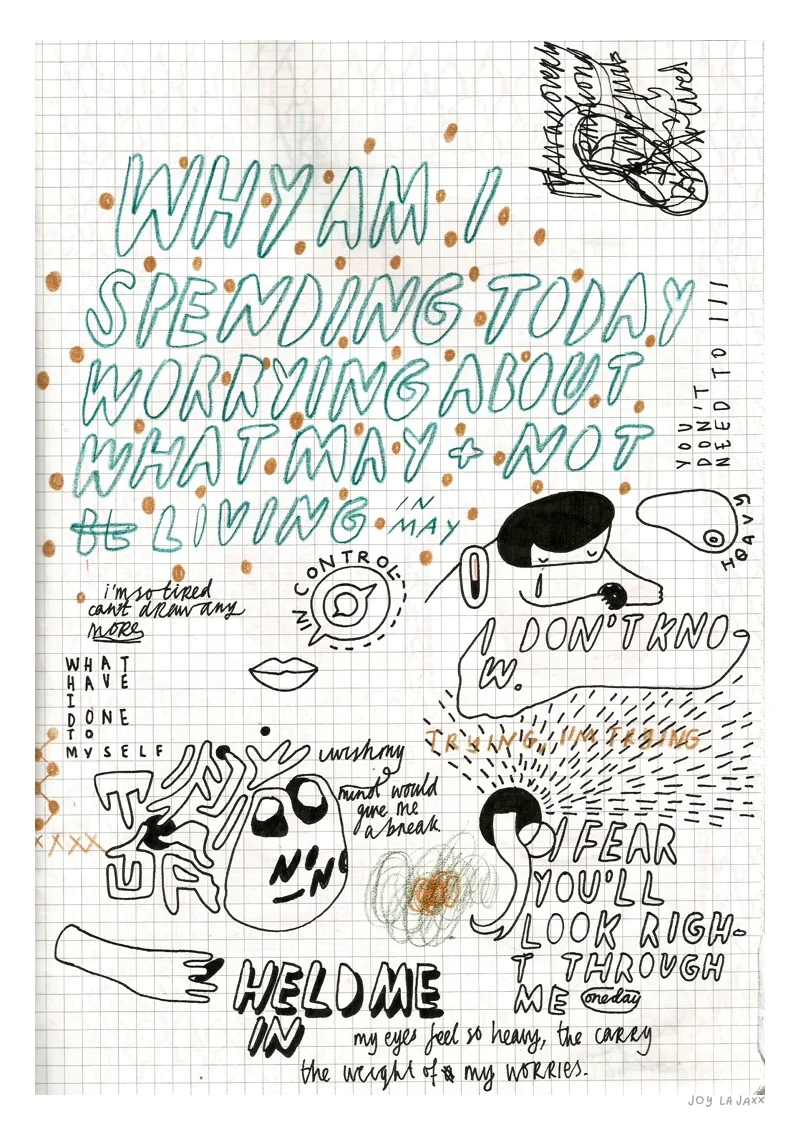 WHY AM I
SPENDING TODAY
WORRYING ABOUT
WHAT MAY + NOT
BE LIVING IN
MAY
YOU
DON'T
NEED TO III
HEAVY
IN CONTROL
i'm so tired
can't draw any
MORE
WHAT
HAVE
I
DONE
TO
MYSELF
I DON'T KNO
W.
TRYING, I'M TRYING
i wish my
mind would
give me
a break.
I FEAR
YOU'LL
LOOK RIGH-
T THROUGH
ME one day
HELD ME
IN
my eyes feel so heavy, the carry
the weight of my worries.
JOY LAJAXX